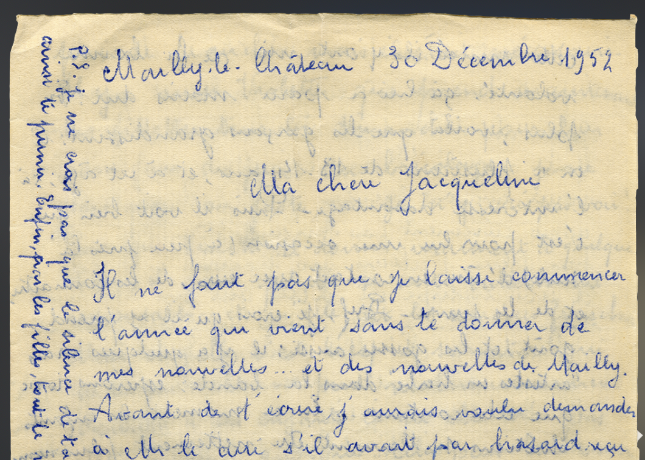 Mailly-le-Château 30 Décembre 1952
Ma chère Jacqueline
Il ne faut pas que je laisse commencer
l'année qui vient sans te donner de
mes nouvelles... et des nouvelles de Mailly.
Avant de t'écrire j'aurais voulu demander
à Mr le curé s'il avait par hasard reçu
P.S. je ne crois pas que le silence de ta
les filles, tout le